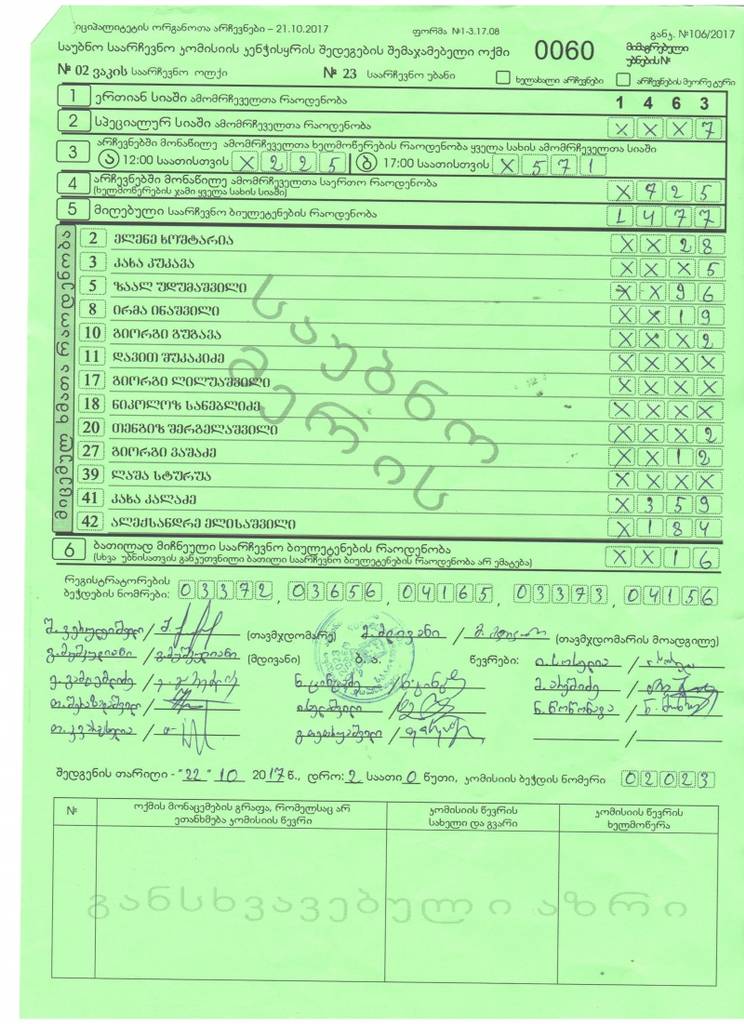 იციპალიტეტის ორგანოთა არჩევნები – 21.10.2017 ფორმა №1-3.17.08 განკ. №106/2017
საუბნო საარჩევნო კომისიის კენჭისყრის შედეგების შემაჯამებელი ოქმი 0060 მიმაგრებული უბნების №
№ 02 ვაკის საარჩევნო ოლქი № 23 საარჩევნო უბანი ხელახალი არჩევნები არჩევნების მეორე ტური
1 ერთიან სიაში ამომრჩეველთა რაოდენობა 1 4 6 3
2 სპეციალურ სიაში ამომრჩეველთა რაოდენობა X X X 7
3 არჩევნებში მონაწილე ამომრჩეველთა ხელმოწერების რაოდენობა ყველა სახის ამომრჩეველთა სიაში
ა 12:00 საათისთვის X 2 2 5 ბ 17:00 საათისთვის X 5 7 1
4 არჩევნებში მონაწილე ამომრჩეველთა საერთო რაოდენობა X 7 2 5
(ხელმოწერების ჯამი ყველა სახის სიაში)
5 მიღებული საარჩევნო ბიულეტენების რაოდენობა 1 4 7 7
მიცემულ ხმათა რაოდენობა
2 ელენე ხოშტარია X X 2 8
3 კახა კუკავა X X X 5
5 ზაალ უდუმაშვილი X X 9 6
8 ირმა ინაშვილი X X 1 9
10 გიორგი გუგავა X X X 2
11 დავით შუკაკიძე X X X X
17 გიორგი ლილუაშვილი X X X X
18 ნიკოლოზ სანებლიძე X X X X
20 თენგიზ შერგელაშვილი X X X 2
27 გიორგი ვაშაძე X X 1 2
39 ლაშა სტურუა X X X X
41 კახა კალაძე X 3 5 9
42 ალექსანდრე ელისაშვილი X 1 8 4
საუბნო
მერის
6 ბათილად მიჩნეული საარჩევნო ბიულეტენების რაოდენობა X X 1 6
(სხვა უბნისათვის განკუთვნილი ბათილი საარჩევნო ბიულეტენების რაოდენობა არ ემატება)
რეგისტრატორების
ბეჭდების ნომრები: 03372, 03656, 04165, 03373, 04156
(თავმჯდომარე) (თავმჯდომარის მოადგილე)
(მდივანი) ბ. ა. წევრები:
შედგენის თარიღი - "22" 10 2017 წ., დრო: 2 საათი 0 წუთი, კომისიის ბეჭდის ნომერი 02023
№ ოქმის მონაცემების გრაფა, რომელსაც არ ეთანხმება კომისიის წევრი კომისიის წევრის სახელი და გვარი კომისიის წევრის ხელმოწერა
განსხვავებული აზრი